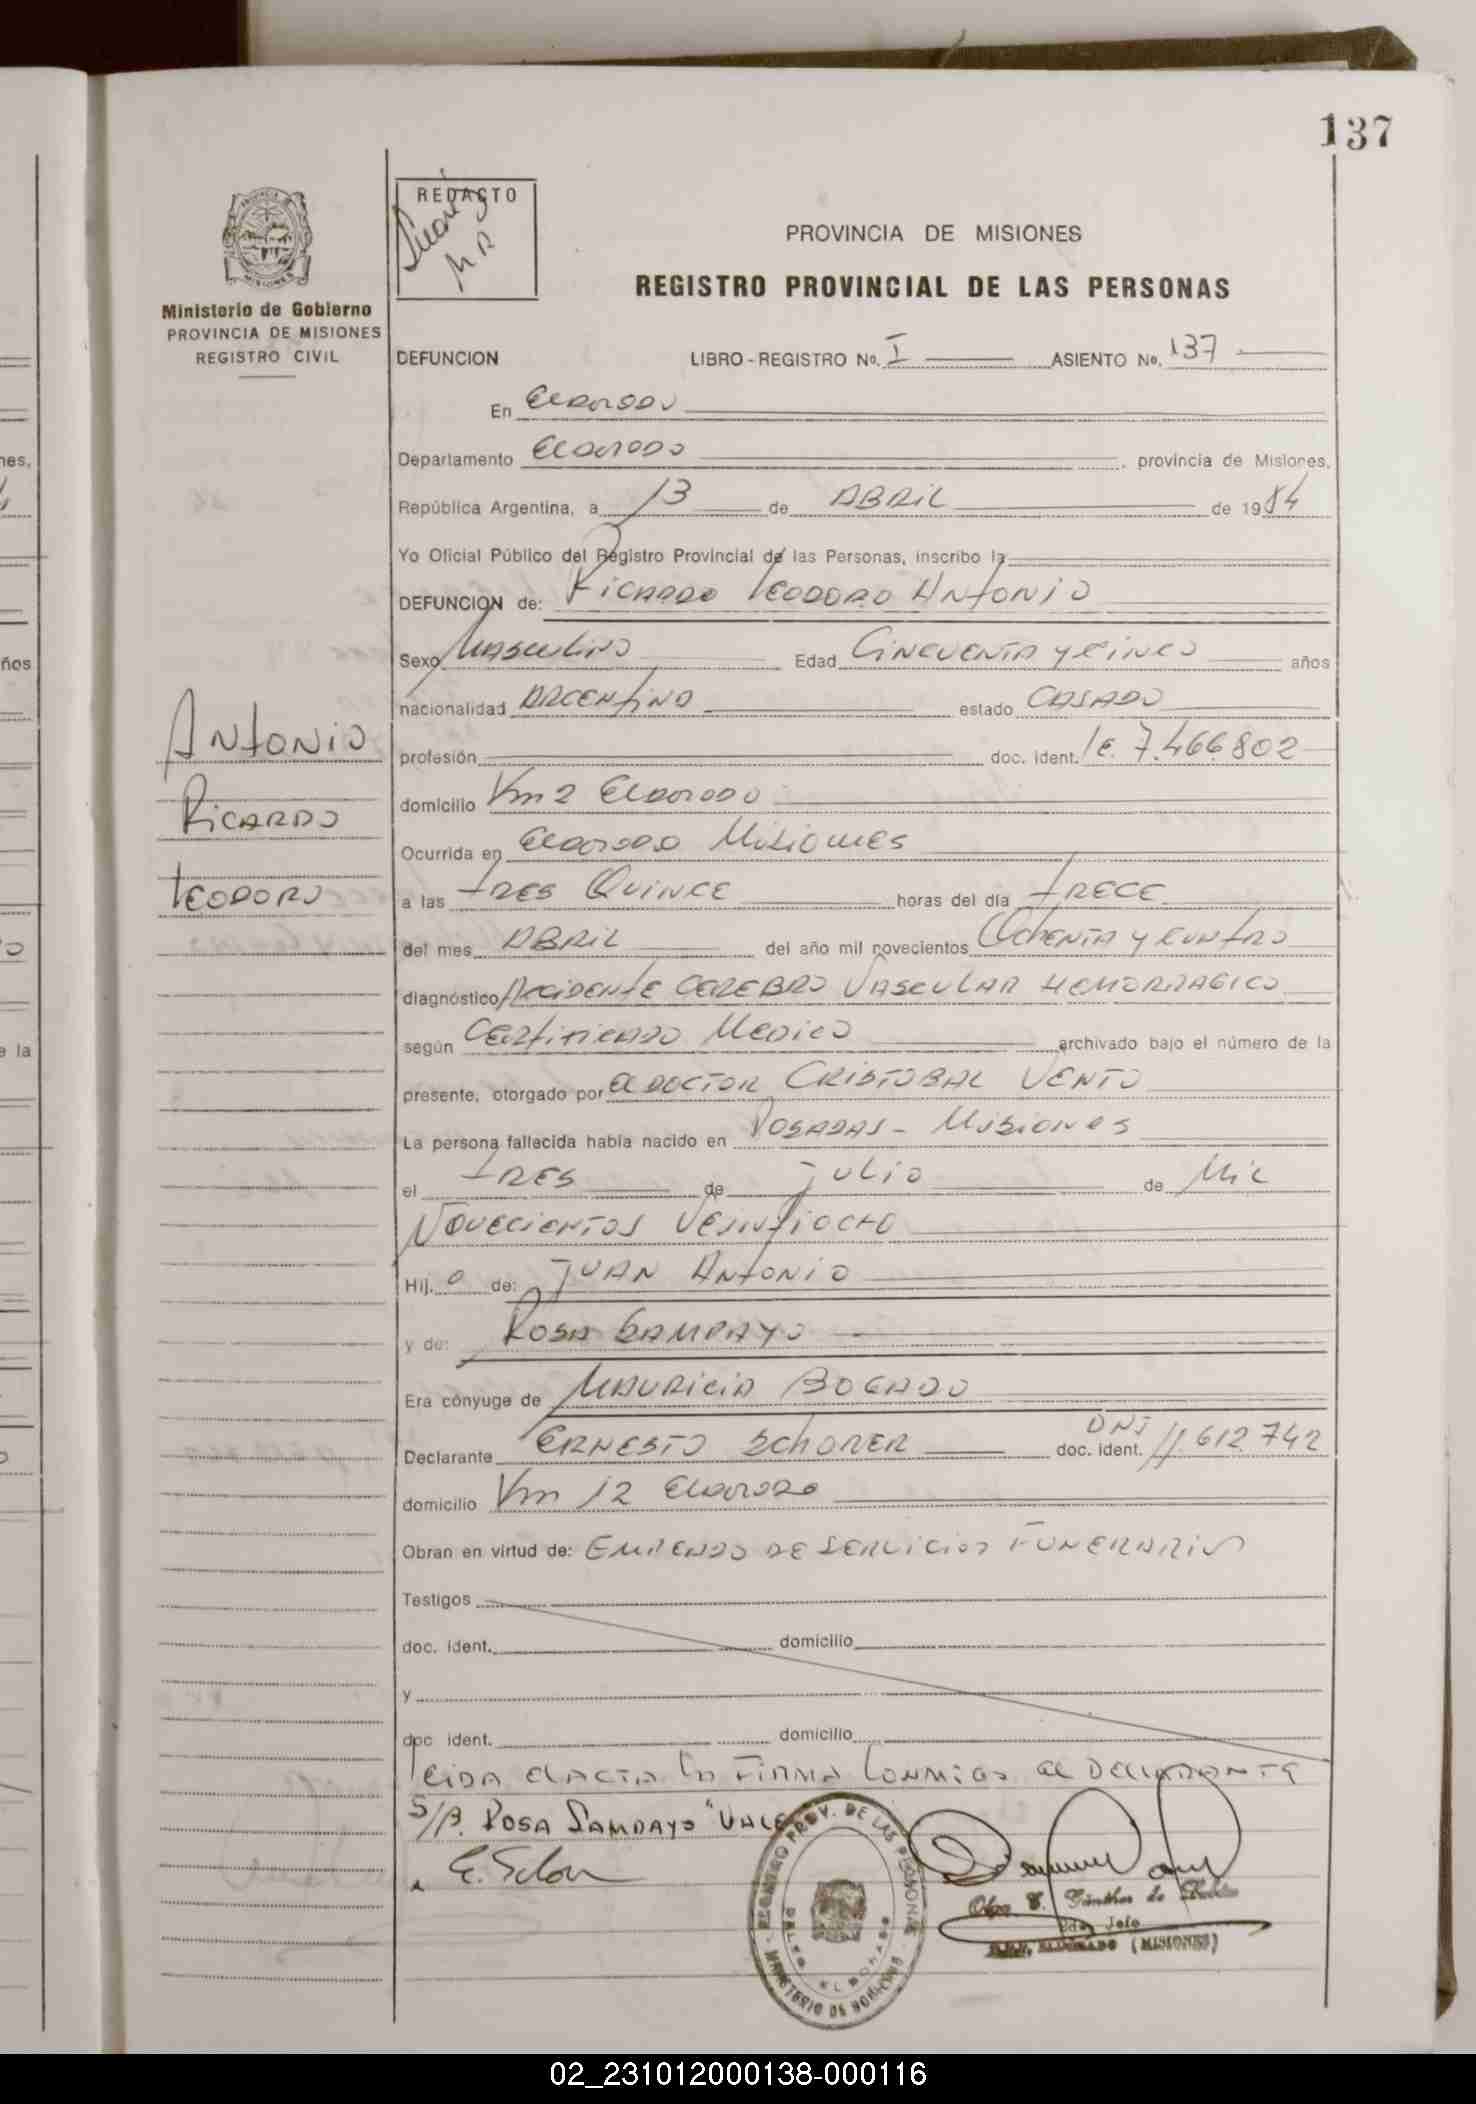 137
REDACTO
PROVINCIA DE MISIONES
REGISTRO PROVINCIAL DE LAS PERSONAS
Ministerio de Gobierno
PROVINCIA DE MISIONES
REGISTRO CIVIL
DEFUNCION LIBRO - REGISTRO No. I ASIENTO No. 137
En Eldorado
Departamento Eldorado, provincia de Misiones,
República Argentina, a 13 de ABRIL de 1984
Yo Oficial Público del Registro Provincial de las Personas, inscribo la
DEFUNCION de: Ricardo Teodoro Antonio
Sexo Masculino Edad Cincuenta y cinco años
nacionalidad Argentino estado Casado
Antonio
Ricardo
Teodoro
profesión doc. ident. 7.466.802
domicilio Km 2 Eldorado
Ocurrida en Eldorado Misiones
a las Tres Quince horas del día Trece
del mes Abril del año mil novecientos Ochenta y cuatro
diagnóstico Accidente Cerebro Vascular Hemorragico
según Certificado Medico archivado bajo el número de la
presente, otorgado por el Doctor Cristobal Vento
La persona fallecida había nacido en Posadas - Misiones
el Tres de Julio de Mil
Novecientos Veintiocho
Hij o de: Juan Antonio
y de: Rosa Sampayo
Era cónyuge de Mauricia Bogado
Declarante Ernesto Schoner doc. ident. DNI 11.612.742
domicilio Km 12 Eldorado
Obran en virtud de: Empleado de Servicios Funerarios
Testigos
doc. ident. domicilio
y
doc. ident. domicilio
Leida el acta la Firma Conmigo el Declarante
S/B. Rosa Sampayo "Vale
REGISTRO PROV. DE LAS PERSONAS
MINISTERIO DE GOBIERNO
ELDORADO
Olga
2do. Jefe
ELDORADO (MISIONES)
02_231012000138-000116